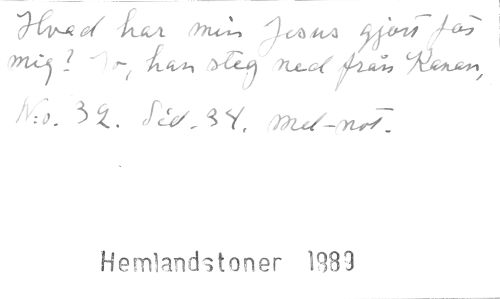 Hvad har min Jesus gjort för
mig? Jo, han steg ned från Kanan,
N:o. 32. Sid. 34. Med-not.
Hemlandstoner 1889